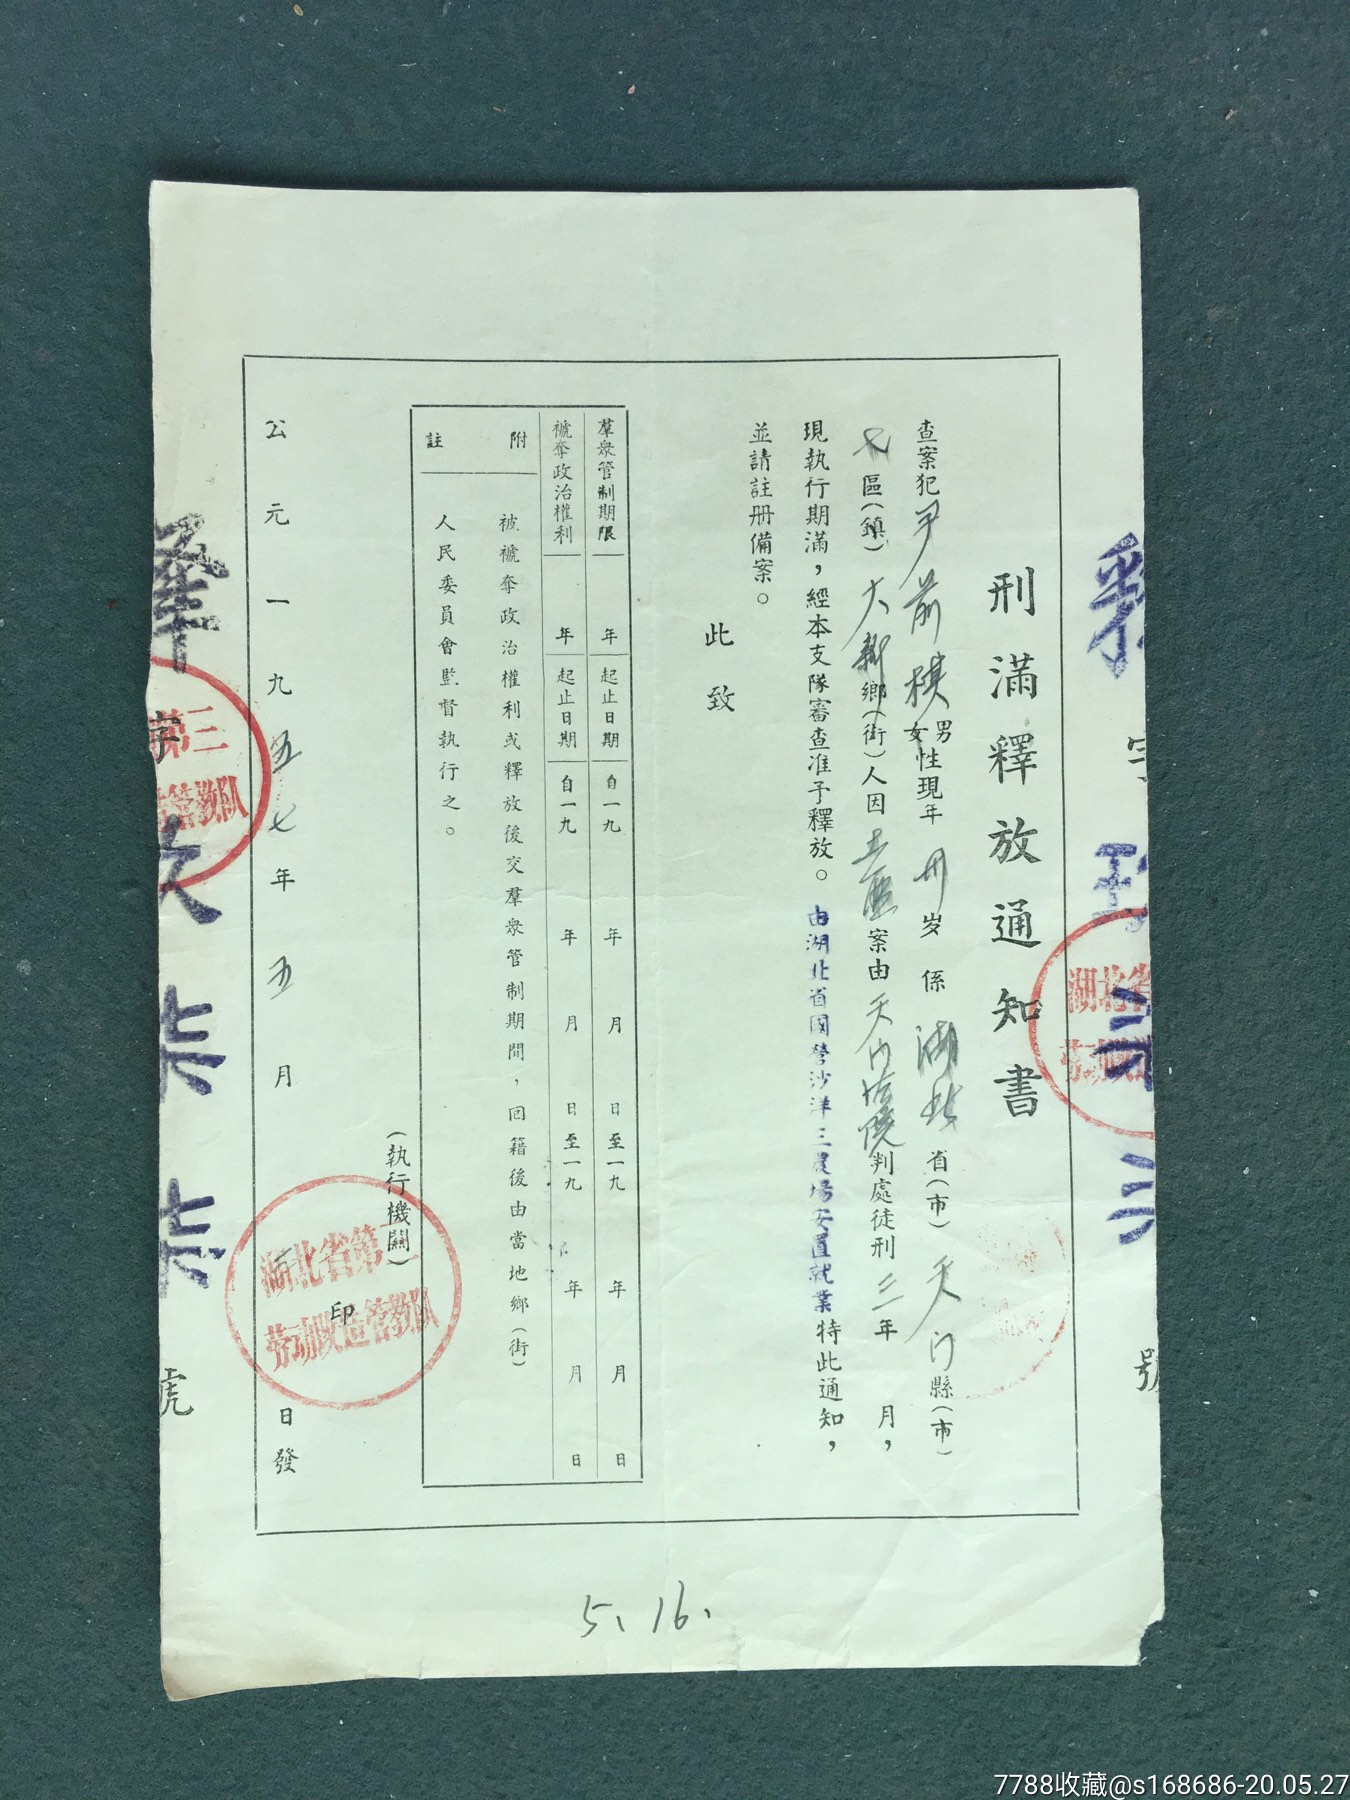 刑滿釋放通知書
查案犯尹前祺男女性現年卅岁係湖北省(市)天门縣(市)
區(鎮)大新鄉(街)人因案由天门法院判處徒刑三年月，
現執行期滿，經本支隊審查准予釋放。由湖北省國營沙洋三農場安置就業特此通知，
並請註册備案。
此致
羣衆管制期限 年 起止日期 自一九 年 月 日至一九 年 月 日
褫奪政治權利 年 起止日期 自一九 年 月 日至一九 年 月 日
附註
被褫奪政治權利或釋放後交羣衆管制期間，回籍後由當地鄉(街)
人民委員會監督執行之。
(執行機關)
印
公元一九五七年五月 日發
釋字 號
字 柒柒 號
湖北省第三
劳动改造管教队
湖北省
劳动改造
第三
管教队
5、16.
7788收藏@s168686-20.05.27